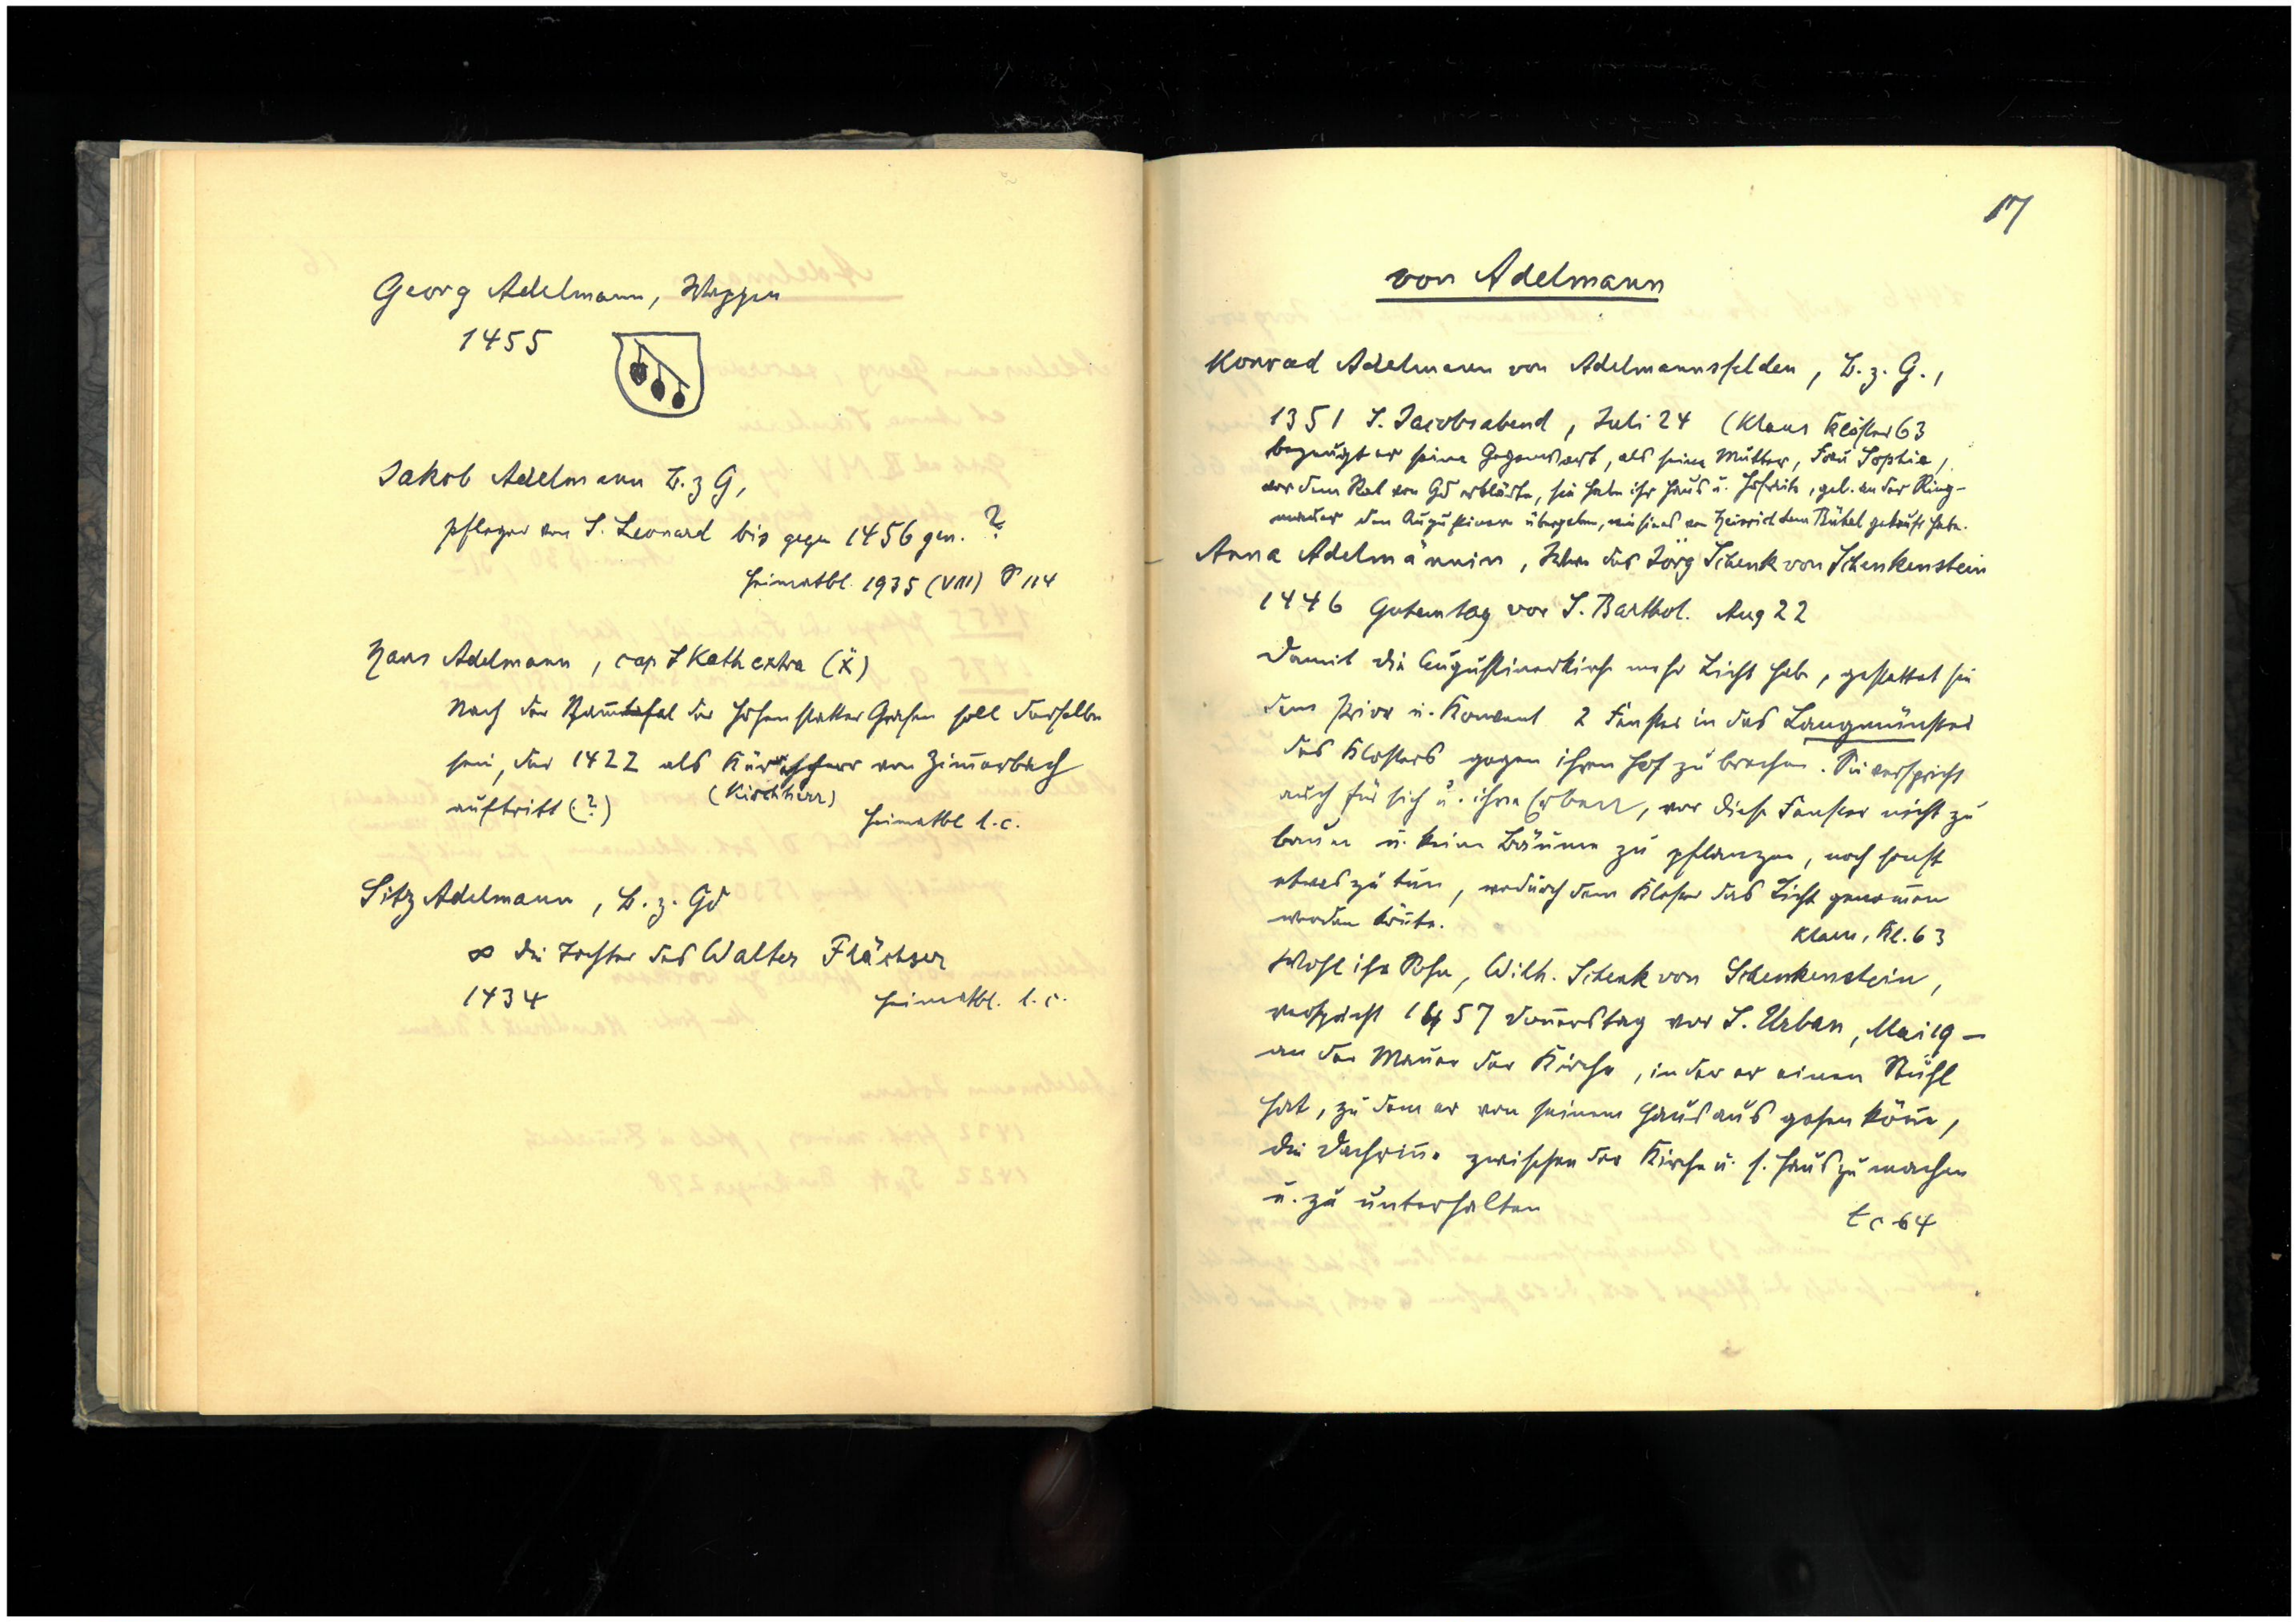 Georg Adelmann, Wappen
1455
Jakob Adelmann B. z G,
pfleger von S. Leonard bis gegen 1456 gen. ?
Heimatbl. 1935 (VIII) S 114
Hans Adelmann, cap S Kath extra (X)
Nach der Stammtafel der Hohenstatter Grafen soll derselbe
sein, der 1422 als von Zim̄erbach
(Kirchherr)
auftritt (?)
Heimatbl l. c.
Sitz Adelmann, B. z. Gd
∞ die Tochter des Walter Flächser
1434
Heimatbl. l. c.
17
von Adelmann
Konrad Adelmann von Adelmannsfelden, B. z. G.,
1351 S. Jacobsabend, Juli 24 (Klaus Klöster 63
bezeugt er seine Gegenwart, als seine Mutter, Frau Sophie,
vor dem Rat von Gd erklärte, sie habe ihr Haus u. Hofraite, gel. an der Ring-
mauer den Augustinern übergeben, wie sie es von Heinrich dem Bühel gekauft habe.
Anna Adelmännin, Witwe des Jörg Schenk von Schenkenstein
1446 Gutemtag vor S. Barthol. Aug 22
Damit die Augustinerkirche mehr Licht habe, gestattet sie
dem Prior u. Konvent 2 Fenster in das Langmünster
des Klosters gegen ihren Hof zu brechen. Sie verspricht
auch für sich u. ihre Erben, vor diese Fenster nicht zu
bauen u. keine Bäume zu pflanzen, noch sonst
etwas zu tun, wodurch dem Kloster das Licht genom̄en
werden kön̄te.
Klaus, Kl. 63
Wohl ihr Sohn, Wilh. Schenk von Schenkenstein,
verspricht 1457 Don̄erstag vor S. Urban, Mai 19 –
an der Mauer der Kirche, in der er einen Stuhl
hat, zu dem er von seinem Haus aus gehen kön̄e,
die Dachrin̄e zwischen der Kirche u. s. Haus zu machen
u. zu unterhalten
l c 64